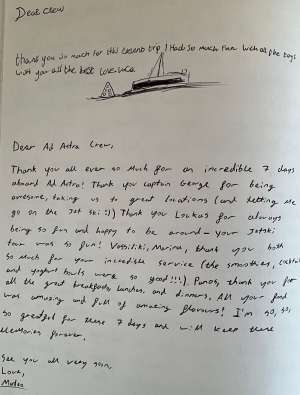 Dear Crew
thank you so much for this trip I Had so much fun with all the boys
wish you all the best Love
Dear Ad Astra Crew,
Thank you all ever so much for an incredible 7 days
aboard Ad Astra! Thank you captain George for being
awesome, taking us to great locations (and letting me
go on the Jet ski :)) Thank you Loukas for always
being so fun and happy to be around - your Jetski
tour was so fun! Vassiliki, Marina, thank you both
so much for your incredible service (the smoothies,
and yoghurt bowls were so good!!!). Panos, thank you for
all the great breakfasts, lunches, and dinners, All your food
was amazing and full of amazing flavours! I'm so, so,
so greatful for these 7 days and will keep these
memories forever.
See you all very soon,
Love,